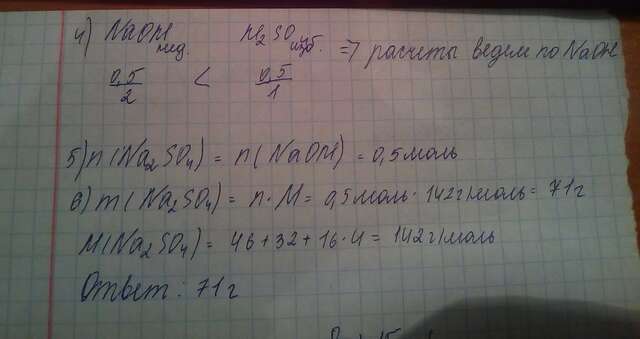 4) NaOH нед. H₂SO₄ изб. => расчеты ведем по NaOH
0,5/2 < 0,5/1
5) n(Na₂SO₄) = n(NaOH) = 0,5моль
6) m(Na₂SO₄) = n·M = 0,5моль·142г/моль = 71г
M(Na₂SO₄) = 46+32+16·4 = 142г/моль
Ответ: 71г